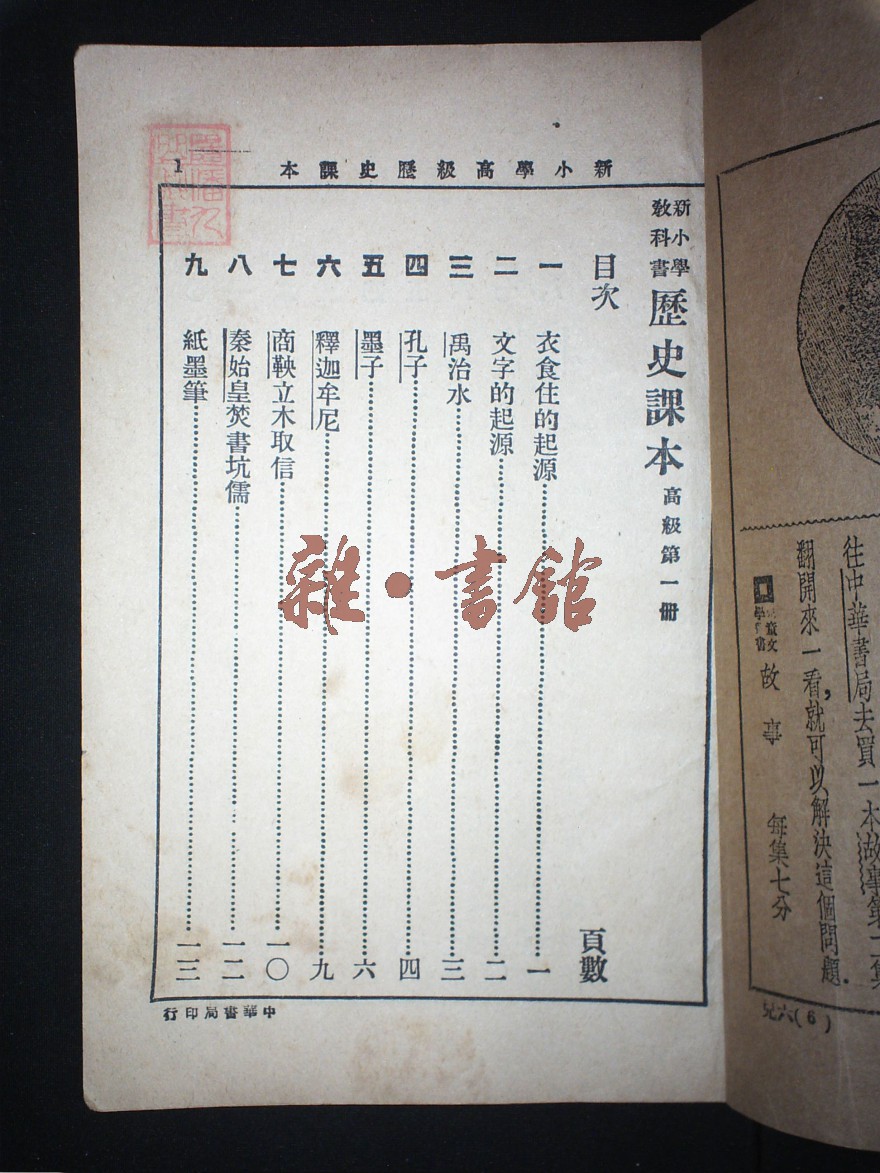 往中華書局去買一本故事第二集
翻開來一看，就可以解決這個問題．
故事　每集七分
兒六(6)
新小學高級歷史課本
1
新小學教科書歷史課本高級第一冊
目次　頁數
一　衣食住的起源……一
二　文字的起源……二
三　禹治水……三
四　孔子……四
五　墨子……六
六　釋迦牟尼……九
七　商鞅立木取信……一〇
八　秦始皇焚書坑儒……一二
九　紙墨筆……一三
中華書局印行
雜・書館